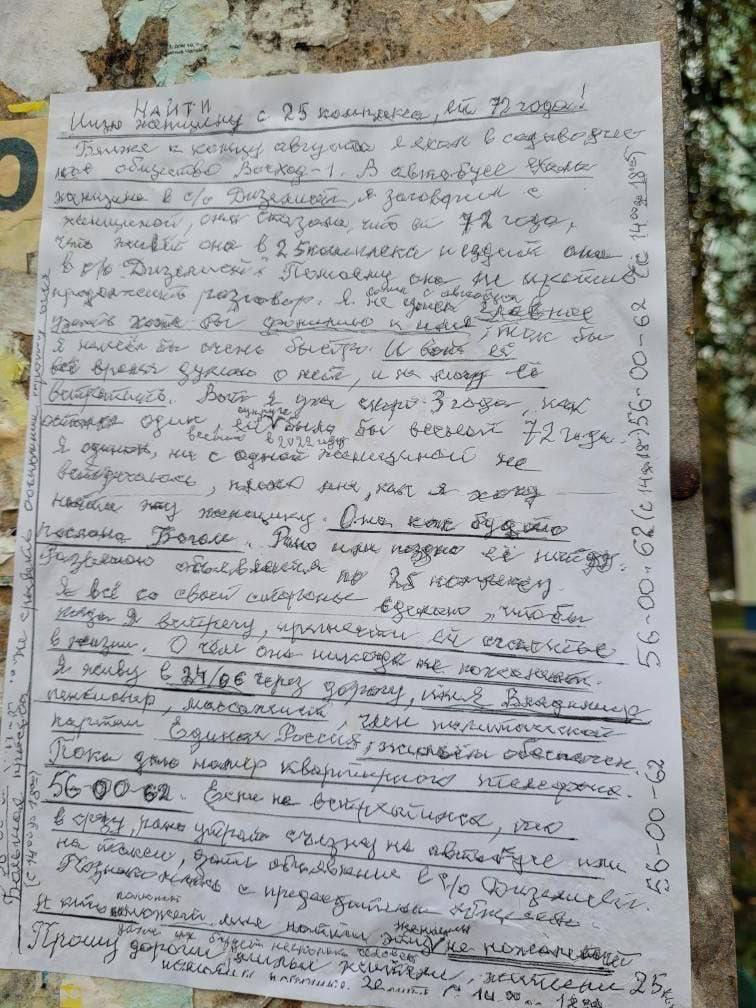 НАЙТИ
Ищу женщину с 25 комплекса, ей 72 года!
Ближе к концу августа я ехал в садоводчес-
кое общество Восход-1. В автобусе ехала
женщина в с/о Дизелист, я заговорил с
женщиной, она сказала, что ей 72 года,
что живёт она в 25 комплекса и ездит она
в с/о Дизелист. По моему она не против
продолжить разговор. Я не успел
главное
узнать хотя бы фамилию и имя, так бы
я нашёл бы очень быстро. И вот я
всё время думаю о ней, и не могу её
встретить. Вот я уже скоро 3 года, как
супруге
остался один, ей было бы весной 72 года.
весной в 2022 году
Я одинок, ни с одной женщиной не
встречалась, плохо мне, как я хочу
найти эту женщину. Она как будто
послана Богом. Рано или поздно её найду.
Развешаю объявления по 25 комплексу.
Я всё со своей стороны сделаю, чтобы
когда я встречу, принести ей счастье
в жизни. О чём она никогда не пожалеет.
Я живу в 24/06 через дорогу, имя Владимир
пенсионер, массажист, член политической
партии Единая Россия, жильём обеспечен.
Пока даю номер квартирного телефона
56-00-62. Если не встретимся, то
в среду, рано утром съезжу на автобусе или
на такси, дать объявление в с/о Дизелист.
Познакомлюсь с председателем
И кто поможет мне найти эту женщину не пожалеет
даже их будет несколько человек
Прошу дорогие милые жители, жители 25
56-00-62 (с 14 до 18) 56-00-62 (с 14 00 до 18 00)
56-00-62
Большая просьба не срывать объявления
(с 14 00 до 18 00)